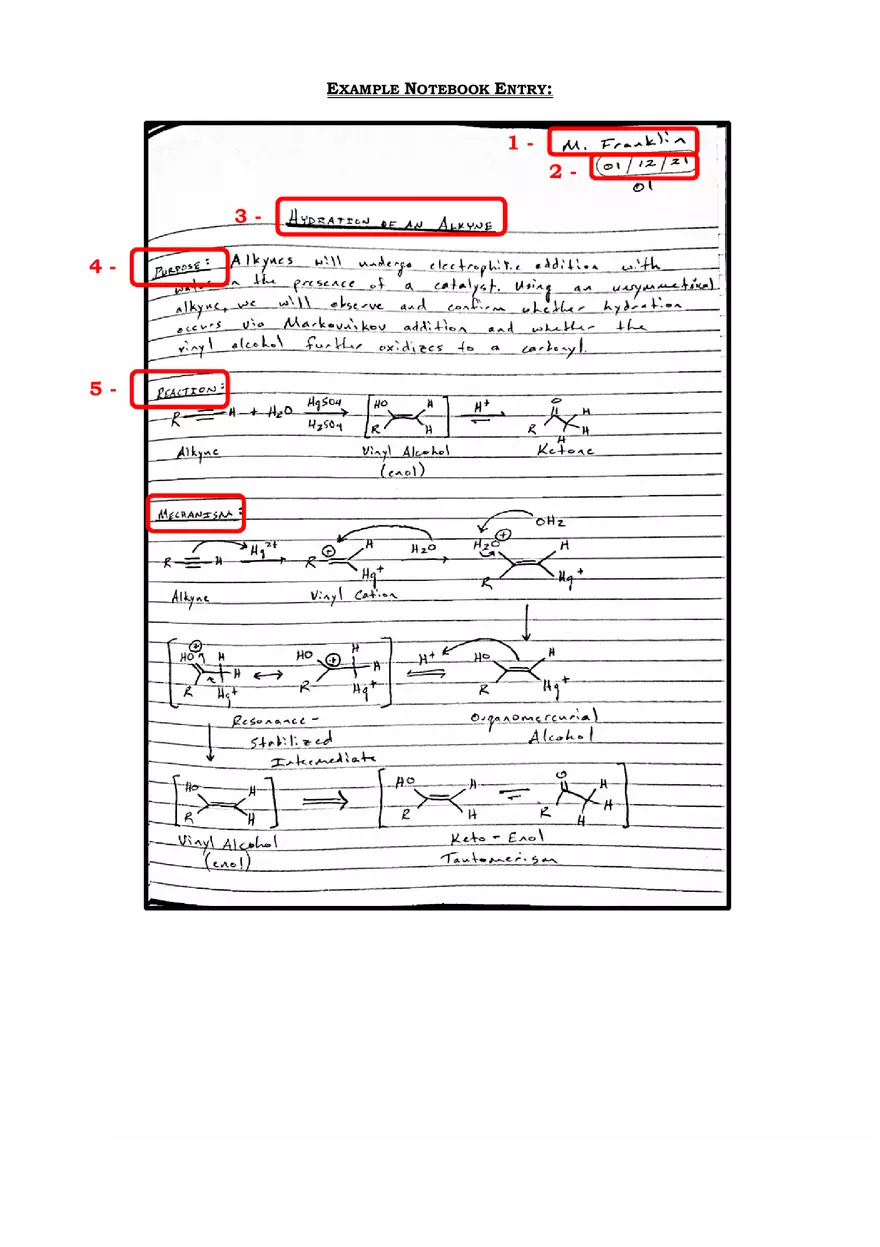 EXAMPLE NOTEBOOK ENTRY:
1 - M. Franklin
2 - 01/12/21
01
3 - HYDRATION OF AN ALKYNE
4 - PURPOSE: Alkynes will undergo electrophilic addition with
water in the presence of a catalyst. Using an unsymmetrical
alkyne, we will observe and confirm whether hydration
occurs via Markovnikov addition and whether the
vinyl alcohol further oxidizes to a carbonyl.
5 - REACTION:
R H + H2O HgSO4 H2SO4 HO H R H H+ O R H H H
Alkyne Vinyl Alcohol Ketone
(enol)
MECHANISM:
R H Hg2+ R + H Hg+ H2O H2O + OH2 H R Hg+
Alkyne Vinyl Cation
HO + H H R Hg+ HO + H H R Hg+ H+ HO H R Hg+
Resonance- Organomercurial
Stabilized Alcohol
Intermediate
HO H R H HO H R H O R H H H
Vinyl Alcohol Keto-Enol
(enol) Tautomerism